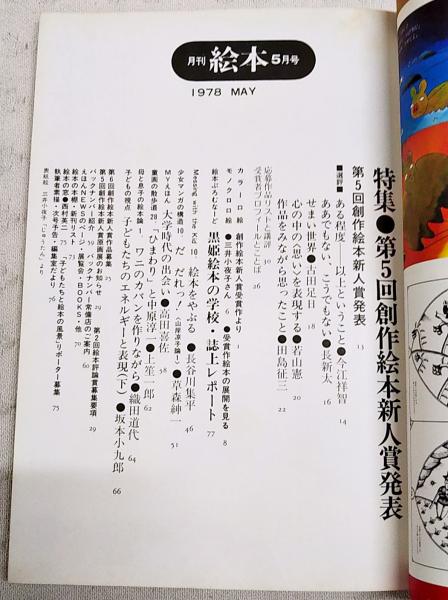 月刊 絵本 5月号
1978 MAY
特集●第5回創作絵本新人賞発表
第5回創作絵本新人賞発表 13
■選評■
ある程度、以上ということ●今江祥智 14
ああでもない、こうでもない●長新太 16
せまい世界●古田足日 18
心の中の〈思い〉を表現する●若山憲 20
作品をみながら思ったこと●田島征三 22
応募作品リストと講評 10
受賞者プロフィールとことば 26
カラー口絵 創作絵本新人賞受賞作より 1
モノクロ口絵 ●三井小夜子さん 6 ●受賞作絵本の展開を見る 8
絵本ぷろむなーど 黒姫絵本の学校・誌上レポート 77
Messing with the Kid 10 絵本をやぶる●長谷川集平 46
少女マンガの構造 10 だ だれっ?(山岸凉子論)●草森紳一 51
MYえほん 大学時代の出会い●高田喜佐 58
童画の散歩道 28 「ひまわり」と中原淳一●上笙一郎 62
母と息子の絵本論 1 ワニのカバンを作りながら●織田道代 64
子どもの視点 子どもたちのエネルギーと表現(下)●坂本小九郎 66
第6回創作絵本新人賞作品募集 25
第5回創作絵本新人賞原画展のお知らせ 29
第2回絵本評論賞募集要項 29
バックナンバー紹介 59
バックナンバー常備店のご案内 60
えほんNEWSのページ・展覧会・BOOKS・他 70
絵本の本棚・新刊リスト 73
絵本の窓●西村英二 75
「子どもたちと絵本の風景」リポーター募集 75
執筆者素描・次号予告・編集室だより 76
表紙絵 三井小夜子